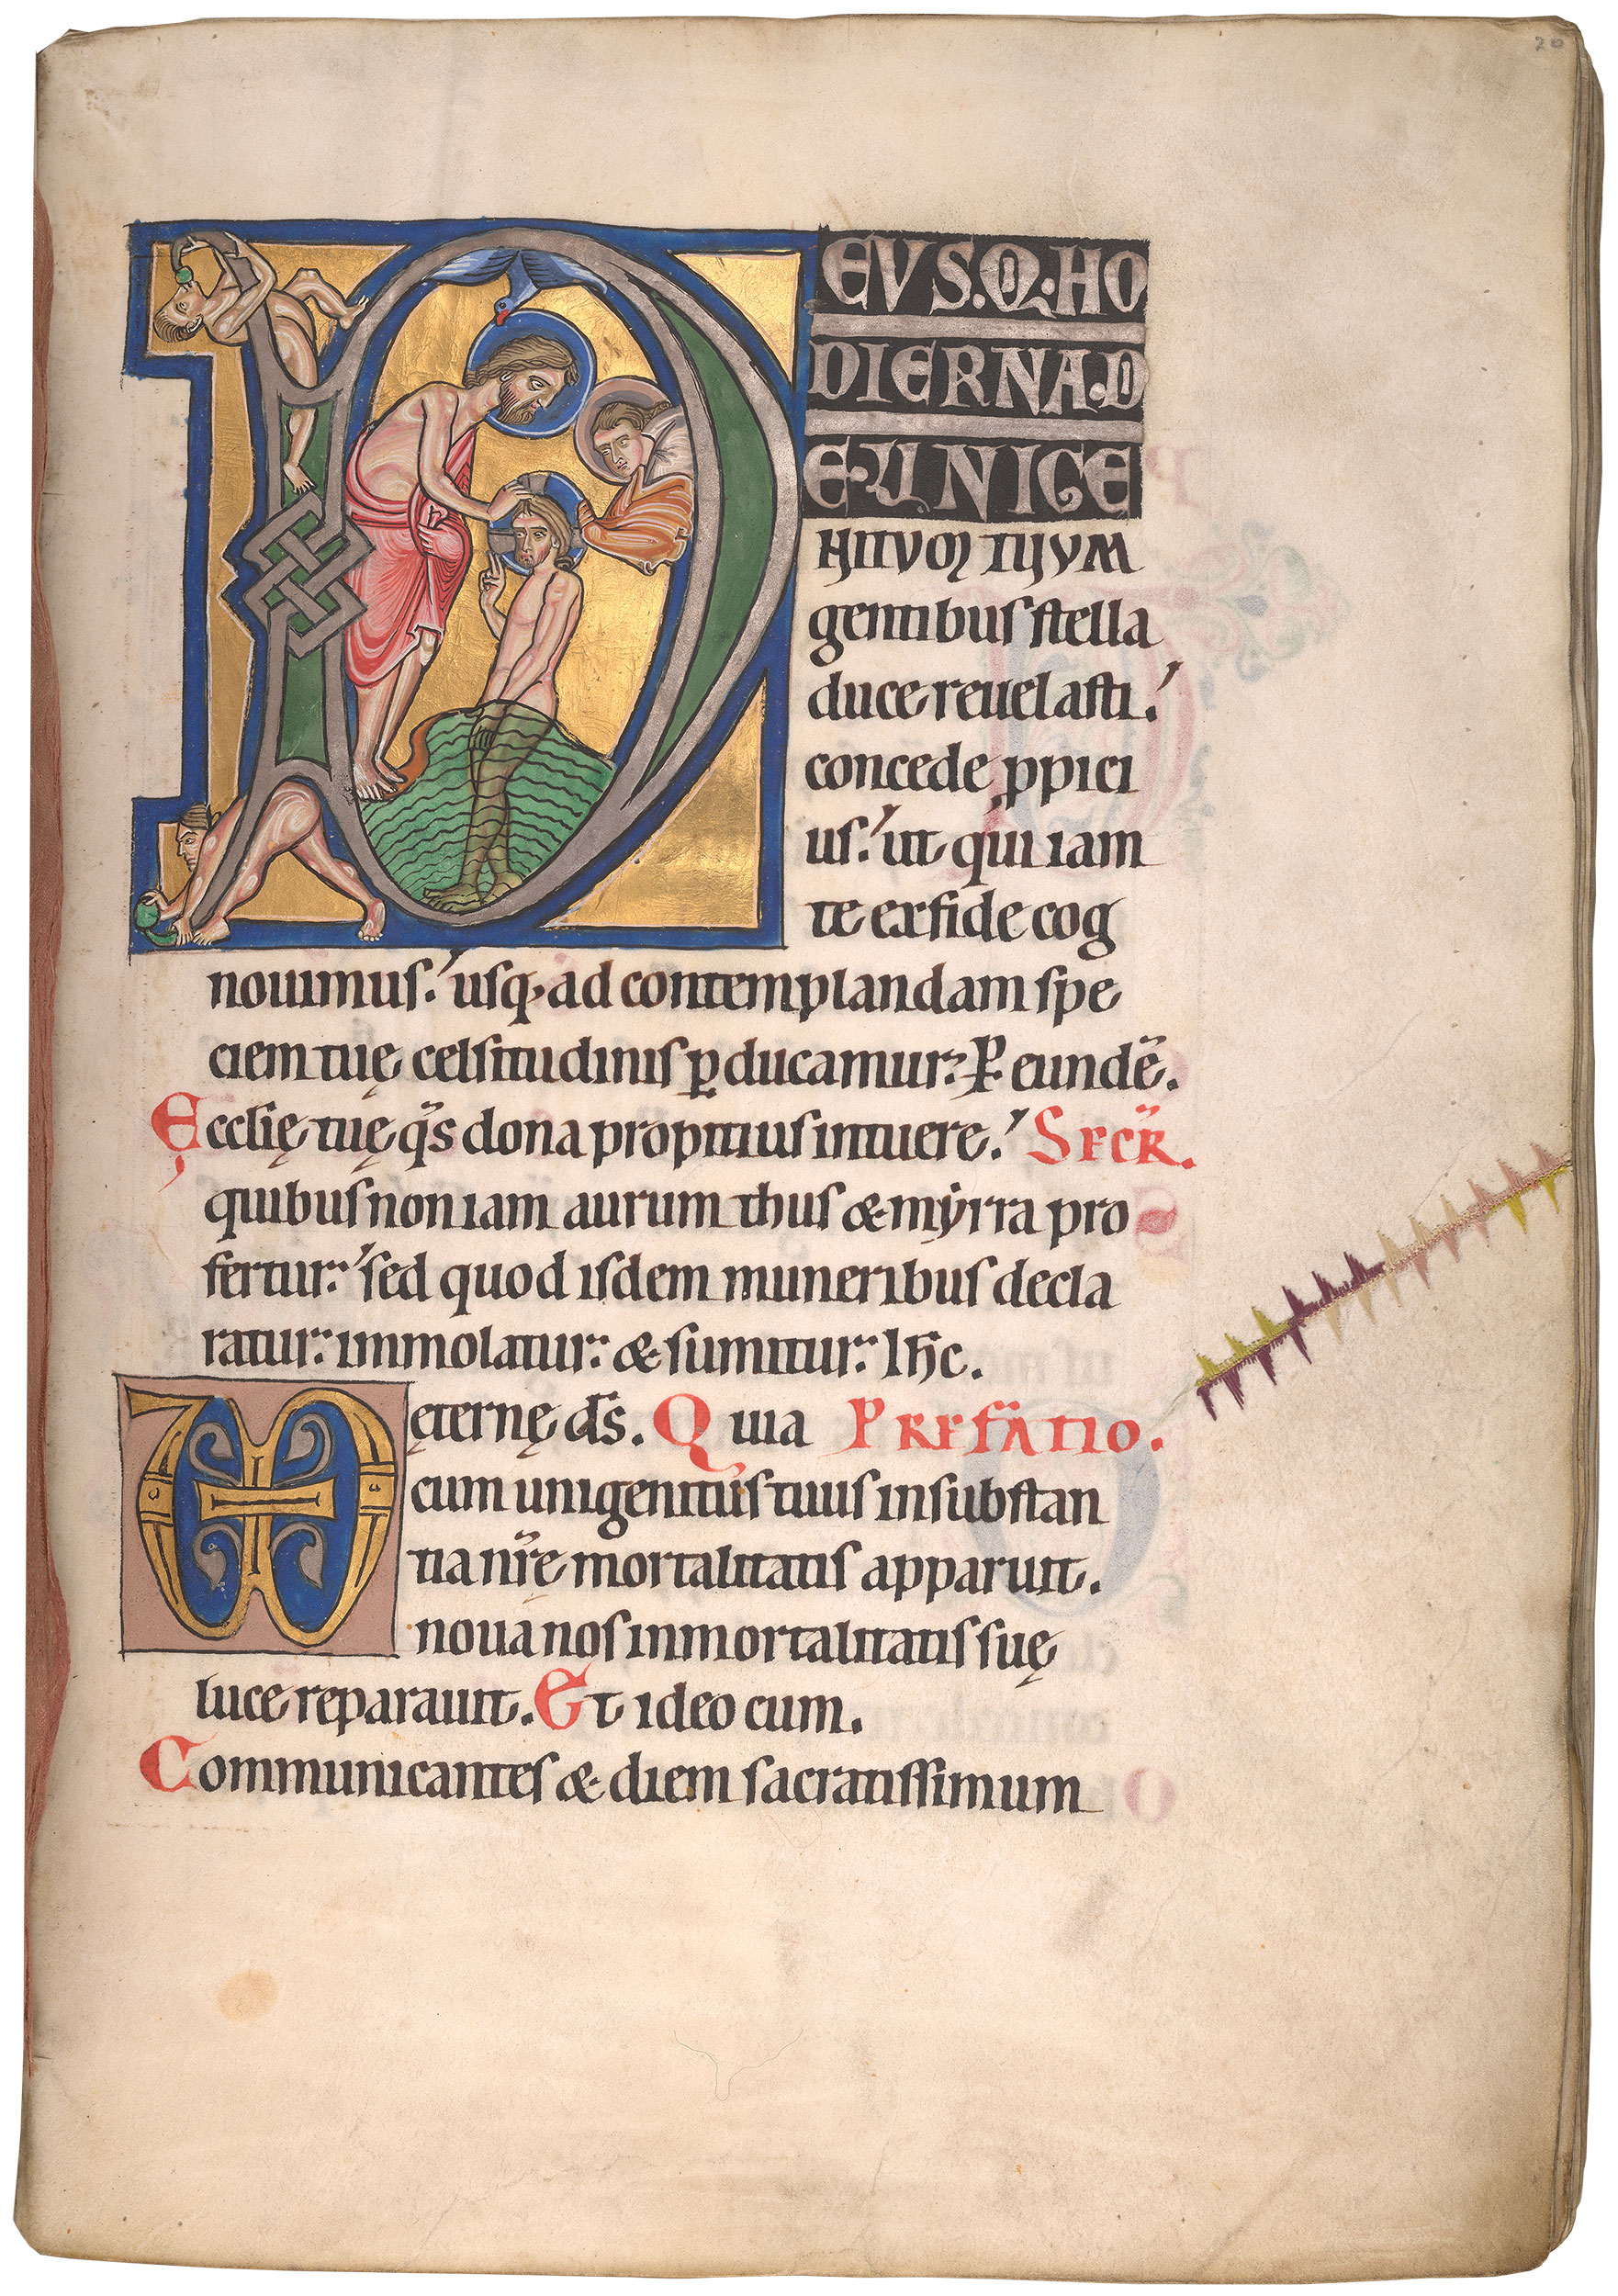 20
DEUS.Q.HO
DIERNA.D
E.UNIGE
NITUM TUUM
gentibus stella
duce reuelasti.
concede ppici
us. ut qui iam
te ex fide cog
nouimus. usq; ad contemplandam spe
ciem tuę celsitudinis ꝑducamur. P eundē.
Ecclię tuę qs dona propitius intuere. SECR̄.
quibus non iam aurum thus & myrra pro
fertur. sed quod isdem muneribus decla
ratur. immolatur. & sumitur. Ihc.
VD ęternę ds. Quia PREFATIO.
cum unigenitus tuus in substan
tia nr̄e mortalitatis apparuit.
noua nos inmortalitatis suę
luce reparauit. Et ideo cum.
Communicantes & diem sacratissimum